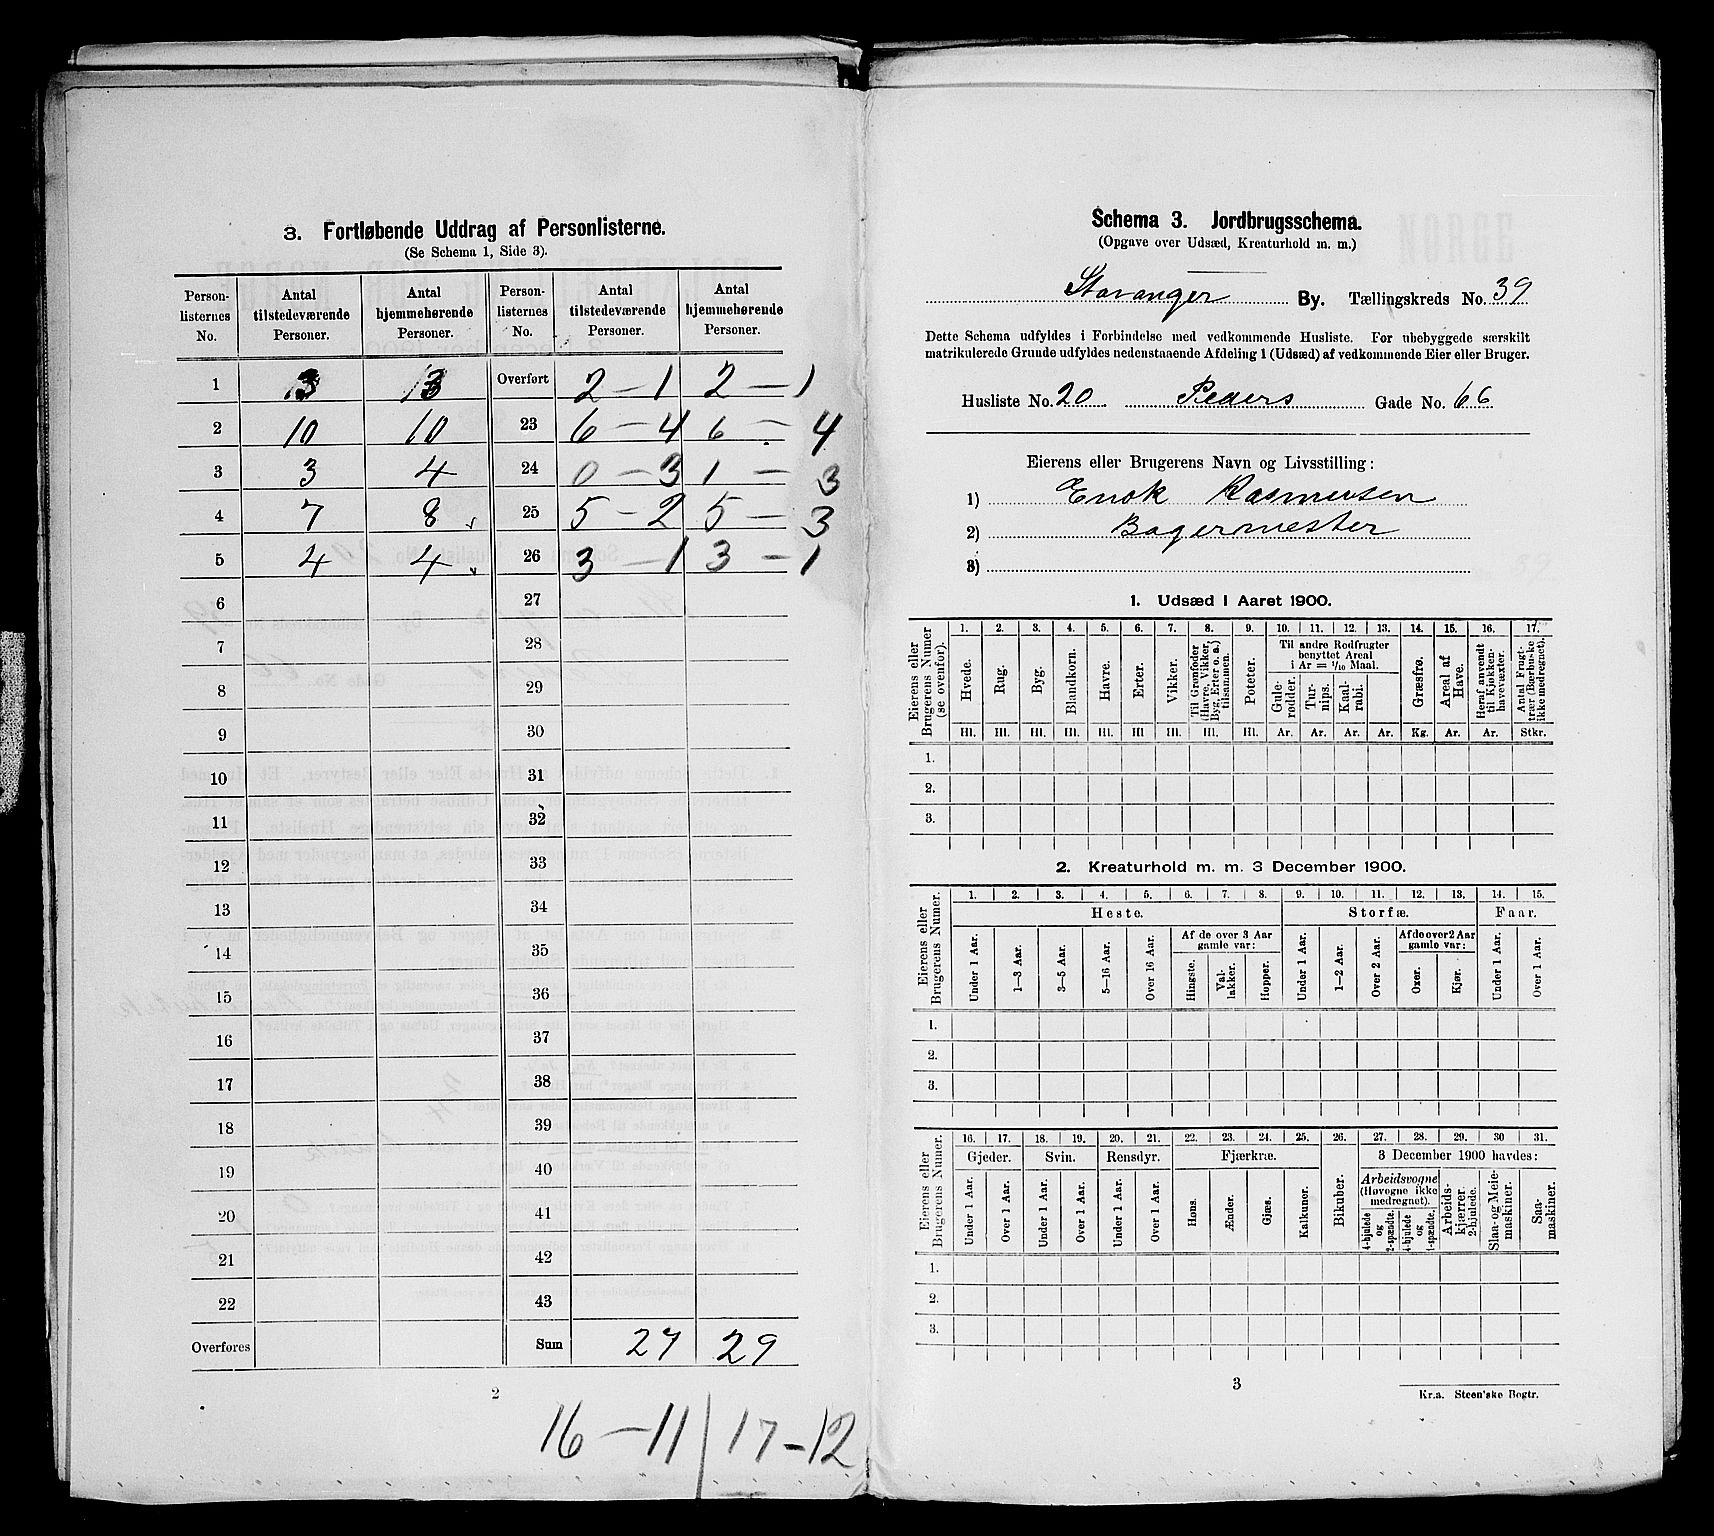 3. Fortløbende Uddrag af Personlisterne.
(Se Schema 1, Side 3).
Person-listernes No. | Antal tilstedeværende Personer. | Antal hjemmehørende Personer. | Person-listernes No. | Antal tilstedeværende Personer. | Antal hjemmehørende Personer.
1 | 3 | 3 | Overført | 2 — 1 | 2 — 1
2 | 10 | 10 | 23 | 6 — 4 | 6 — 4
3 | 3 | 4 | 24 | 0 — 3 | 1 — 3
4 | 7 | 8 | 25 | 5 — 2 | 5 — 3
5 | 4 | 4 | 26 | 3 — 1 | 3 — 1
6 | 27
7 | 28
8 | 29
9 | 30
10 | 31
11 | 32
12 | 33
13 | 34
14 | 35
15 | 36
16 | 37
17 | 38
18 | 39
19 | 40
20 | 41
21 | 42
22 | 43
Overføres | Sum | 27 | 29
2
16 — 11 / 17 - 12
Schema 3. Jordbrugsschema.
(Opgave over Udsæd, Kreaturhold m. m.)
Stavanger By. Tællingskreds No. 39
Dette Schema udfyldes i Forbindelse med vedkommende Husliste. For ubebyggede særskilt
matrikulerede Grunde udfyldes nedenstaaende Afdeling 1 (Udsæd) af vedkommende Eier eller Bruger.
Husliste No. 20 Peders Gade No. 66
Eierens eller Brugerens Navn og Livsstilling:
1) Enok Rasmussen
2) Bagermester
3)
1. Udsæd i Aaret 1900.
Eierens eller Brugerens Numer (se ovenfor).
1. 2. 3. 4. 5. 6. 7. 8. 9. 10. 11. 12. 13. 14. 15. 16. 17.
Til andre Rodfrugter benyttet Areal i Ar = 1/10 Maal.
Hvede. Rug. Byg. Blandkorn. Havre. Erter. Vikker. Til Grønfoder (Havre, Vikker, Byg, Erter o. a.) tilsammen. Poteter. Gule-rødder. Tur-nips. Kaal-rabi. Græsfrø. Areal af Have. Heraf anvendt til Kjøkken-havevæxter. Antal Frugt-trær (Bærbuske ikke medregnet).
Hl. Hl. Hl. Hl. Hl. Hl. Hl. Hl. Hl. Ar. Ar. Ar. Ar. Kg. Ar. Ar. Stkr.
1.
2.
3.
2. Kreaturhold m. m. 3 December 1900.
Eierens eller Brugerens Numer.
1. 2. 3. 4. 5. 6. 7. 8. 9. 10. 11. 12. 13. 14. 15.
Heste. Storfæ. Faar.
Af de over 3 Aar gamle var: Af de over 2 Aar gamle var:
Under 1 Aar. 1—3 Aar. 3—5 Aar. 5—16 Aar. Over 16 Aar. Hingste. Val-lakker. Hopper. Under 1 Aar. 1—2 Aar. Over 2 Aar. Oxer. Kjør. Under 1 Aar. Over 1 Aar.
1.
2.
3.
Eierens eller Brugerens Numer.
16. 17. 18. 19. 20. 21. 22. 23. 24. 25. 26. 27. 28. 29. 30 31.
Gjeder. Svin. Rensdyr. Fjærkræ. 3 December 1900 havdes:
Arbeidsvogne (Høvogne ikke medregnet).
Under 1 Aar. Over 1 Aar. Under 1 Aar. Over 1 Aar. Under 1 Aar. Over 1 Aar. Høns. Ænder. Gjæs. Kalkuner. Bikuber. 4-hjulede og 2-spændte. 4-hjulede og 1-spændte. Arbeids-kjærrer 2-hjulede. Slaa- og Meie-maskiner. Saa-maskiner.
1.
2.
3.
3
Kr.a. Steen'ske Bogtr.